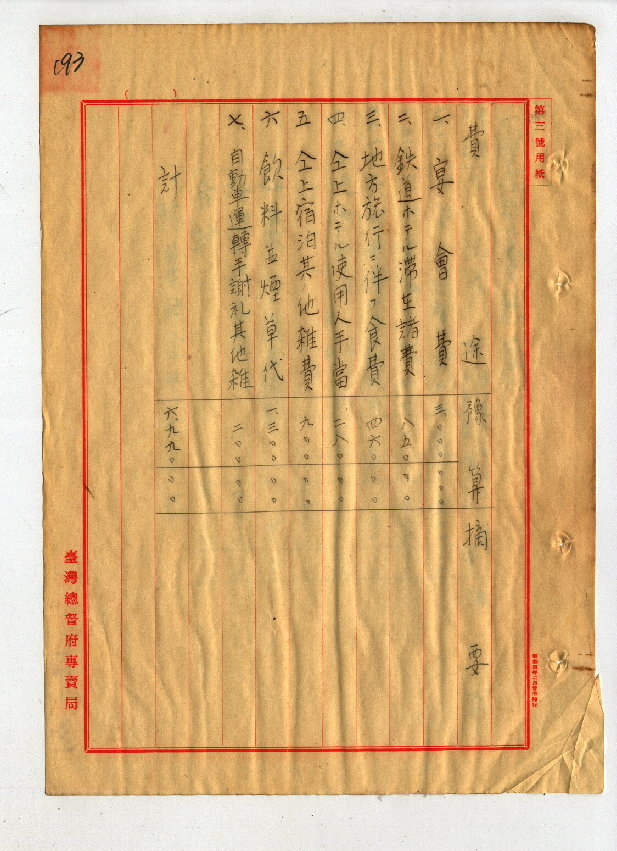 193
第三號用紙
費途 豫算 摘要
一、宴會費 三〇〇〇 〇〇
二、鉄道ホテル滞在諸費 八五〇 〇〇
三、地方旅行ニ伴フ食費 四六〇 〇〇
四、仝上ホテル使用人手當 二八〇 〇〇
五、仝上宿泊其他雑費 九〇〇 〇〇
六、飲料並煙草代 一三〇〇 〇〇
七、自動車運轉手謝礼其他雑 二〇〇 〇〇
計 六九九〇 〇〇
臺灣總督府專賣局